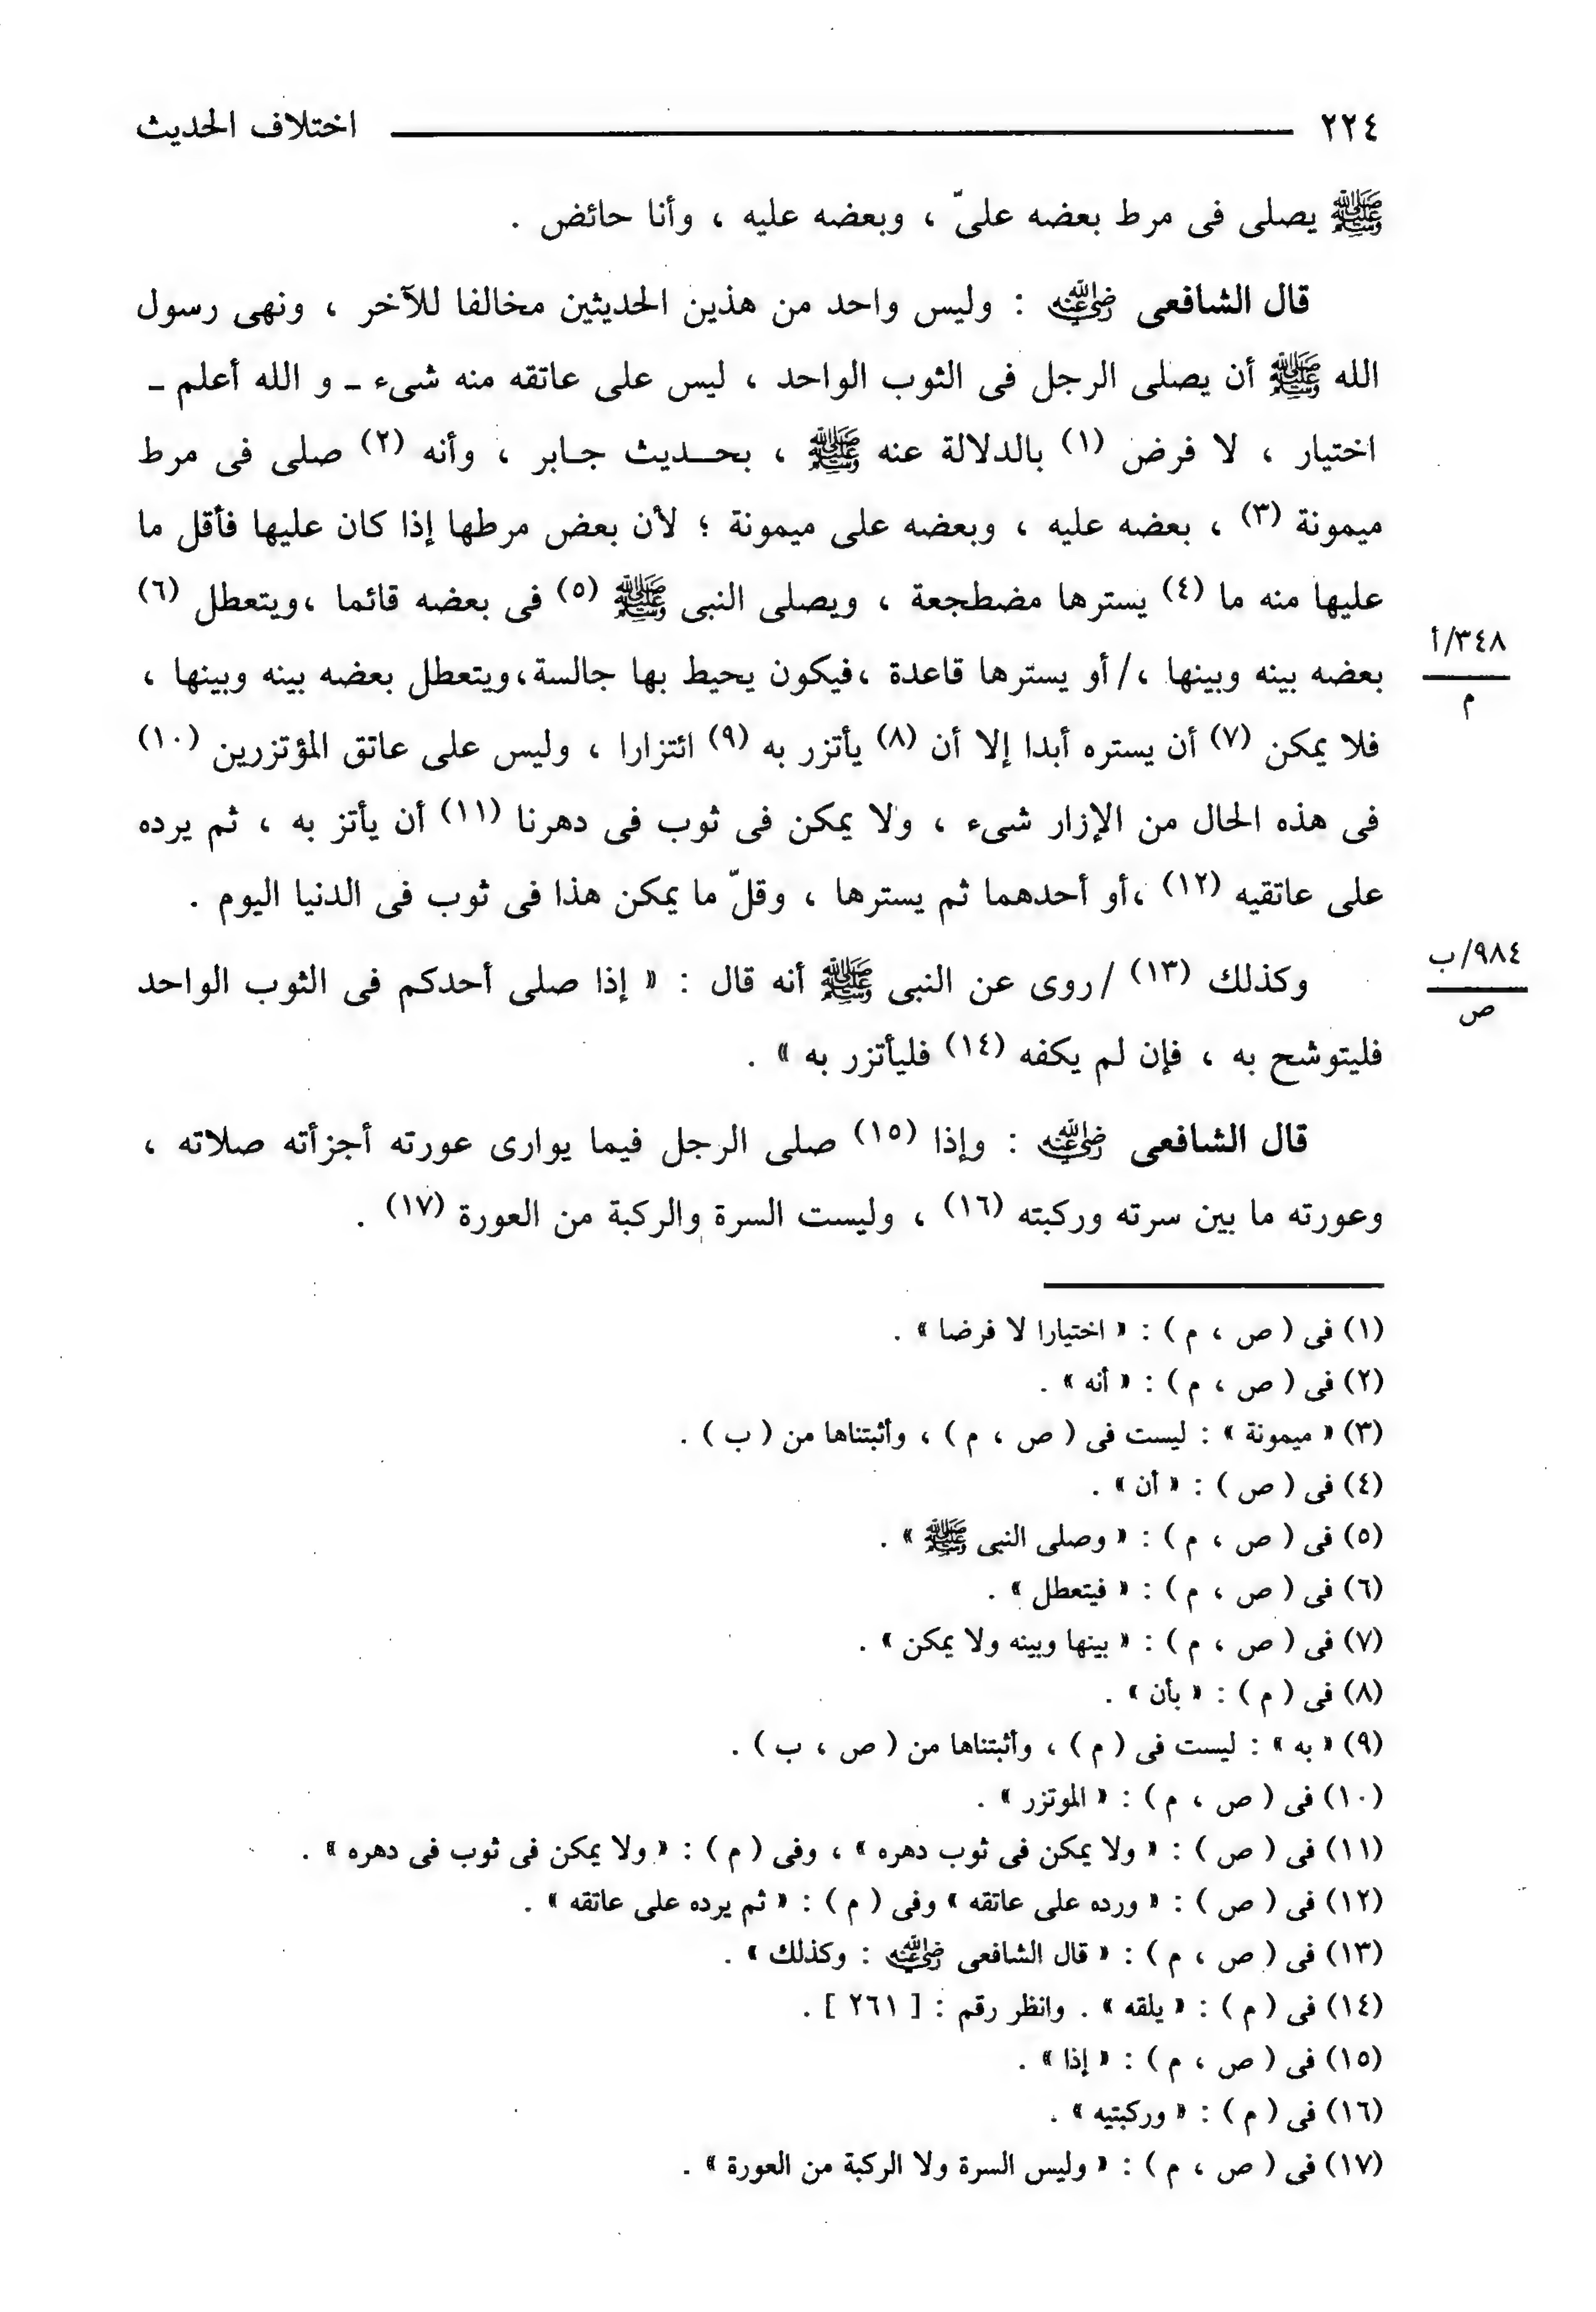 ٢٢٤ اختلاف الحديث
ﷺ يصلى فى مرط بعضه علىّ ، وبعضه عليه ، وأنا حائض .
قال الشافعى رضي الله عنه : وليس واحد من هذين الحديثين مخالفا للآخر ، ونهى رسول
الله ﷺ أن يصلى الرجل فى الثوب الواحد ، ليس على عاتقه منه شىء ـ و الله أعلم ـ
اختيار ، لا فرض (١) بالدلالة عنه ﷺ ، بحـديث جـابر ، وأنه (٢) صلى فى مرط
ميمونة (٣) ، بعضه عليه ، وبعضه على ميمونة ؛ لأن بعض مرطها إذا كان عليها فأقل ما
عليها منه ما (٤) يسترها مضطجعة ، ويصلى النبى ﷺ (٥) فى بعضه قائما ،ويتعطل (٦)
بعضه بينه وبينها ،/ أو يسترها قاعدة ،فيكون يحيط بها جالسة،ويتعطل بعضه بينه وبينها ،
٣٤٨/أ
م
فلا يمكن (٧) أن يستره أبدا إلا أن (٨) يأتزر به (٩) ائتزارا ، وليس على عاتق المؤتزرين (١٠)
فى هذه الحال من الإزار شىء ، ولا يمكن فى ثوب فى دهرنا (١١) أن يأتز به ، ثم يرده
على عاتقيه (١٢) ،أو أحدهما ثم يسترها ، وقلّ ما يمكن هذا فى ثوب فى الدنيا اليوم .
وكذلك (١٣) /روى عن النبى ﷺ أنه قال : « إذا صلى أحدكم فى الثوب الواحد
٩٨٤/ب
ص
فليتوشح به ، فإن لم يكفه (١٤) فليأتزر به » .
قال الشافعى رضي الله عنه : وإذا (١٥) صلى الرجل فيما يوارى عورته أجزأته صلاته ،
وعورته ما بين سرته وركبته (١٦) ، وليست السرة والركبة من العورة (١٧) .
(١) فى ( ص ، م ) : « اختيارا لا فرضا » .
(٢) فى ( ص ، م ) : « أنه » .
(٣) « ميمونة » : ليست فى ( ص ، م ) ، وأثبتناها من ( ب ) .
(٤) فى ( ص ) : « أن » .
(٥) فى ( ص ، م ) : « وصلى النبى ﷺ » .
(٦) فى ( ص ، م ) : « فيتعطل » .
(٧) فى ( ص ، م ) : « بينها وبينه ولا يمكن » .
(٨) فى ( م ) : « بأن » .
(٩) « به » : ليست فى ( م ) ، وأثبتناها من ( ص ، ب ) .
(١٠) فى ( ص ، م ) : « الموتزر » .
(١١) فى ( ص ) : « ولا يمكن فى ثوب دهره » ، وفى ( م ) : « ولا يمكن فى ثوب فى دهره » .
(١٢) فى ( ص ) : « ورده على عاتقه » وفى ( م ) : « ثم يرده على عاتقه » .
(١٣) فى ( ص ، م ) : « قال الشافعى رضي الله عنه : وكذلك » .
(١٤) فى ( م ) : « يلقه » . وانظر رقم : [ ٢٦١ ] .
(١٥) فى ( ص ، م ) : « إذا » .
(١٦) فى ( م ) : « وركبتيه » .
(١٧) فى ( ص ، م ) : « وليس السرة ولا الركبة من العورة » .